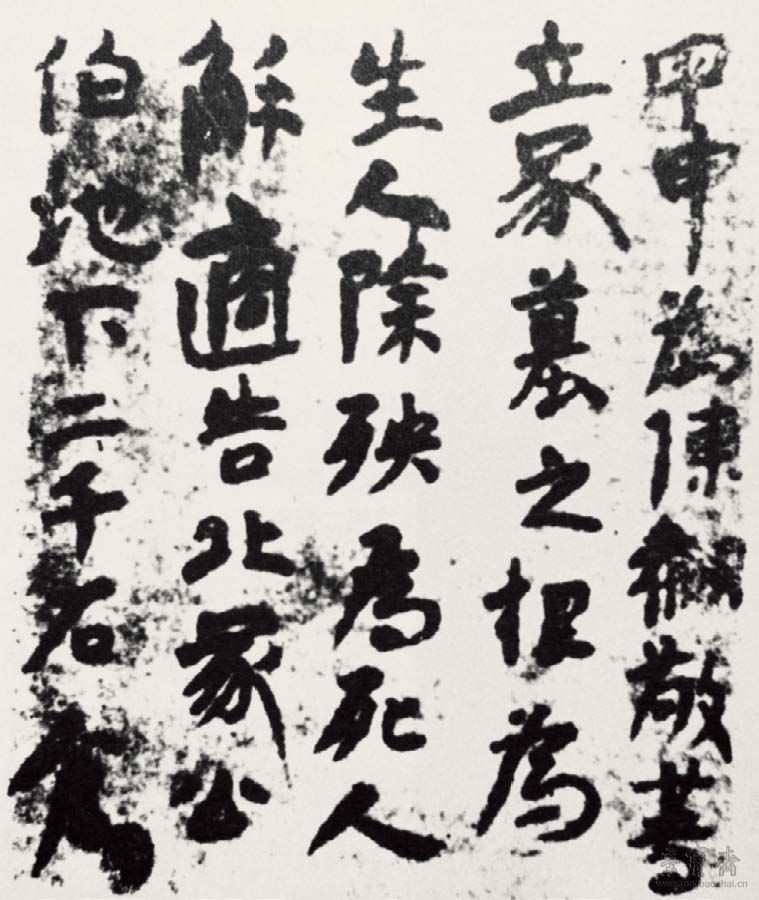 甲申為陳叔敬等
立冢墓之根為
生人除殃為死人
解適告北冢公
伯地下二千石倉